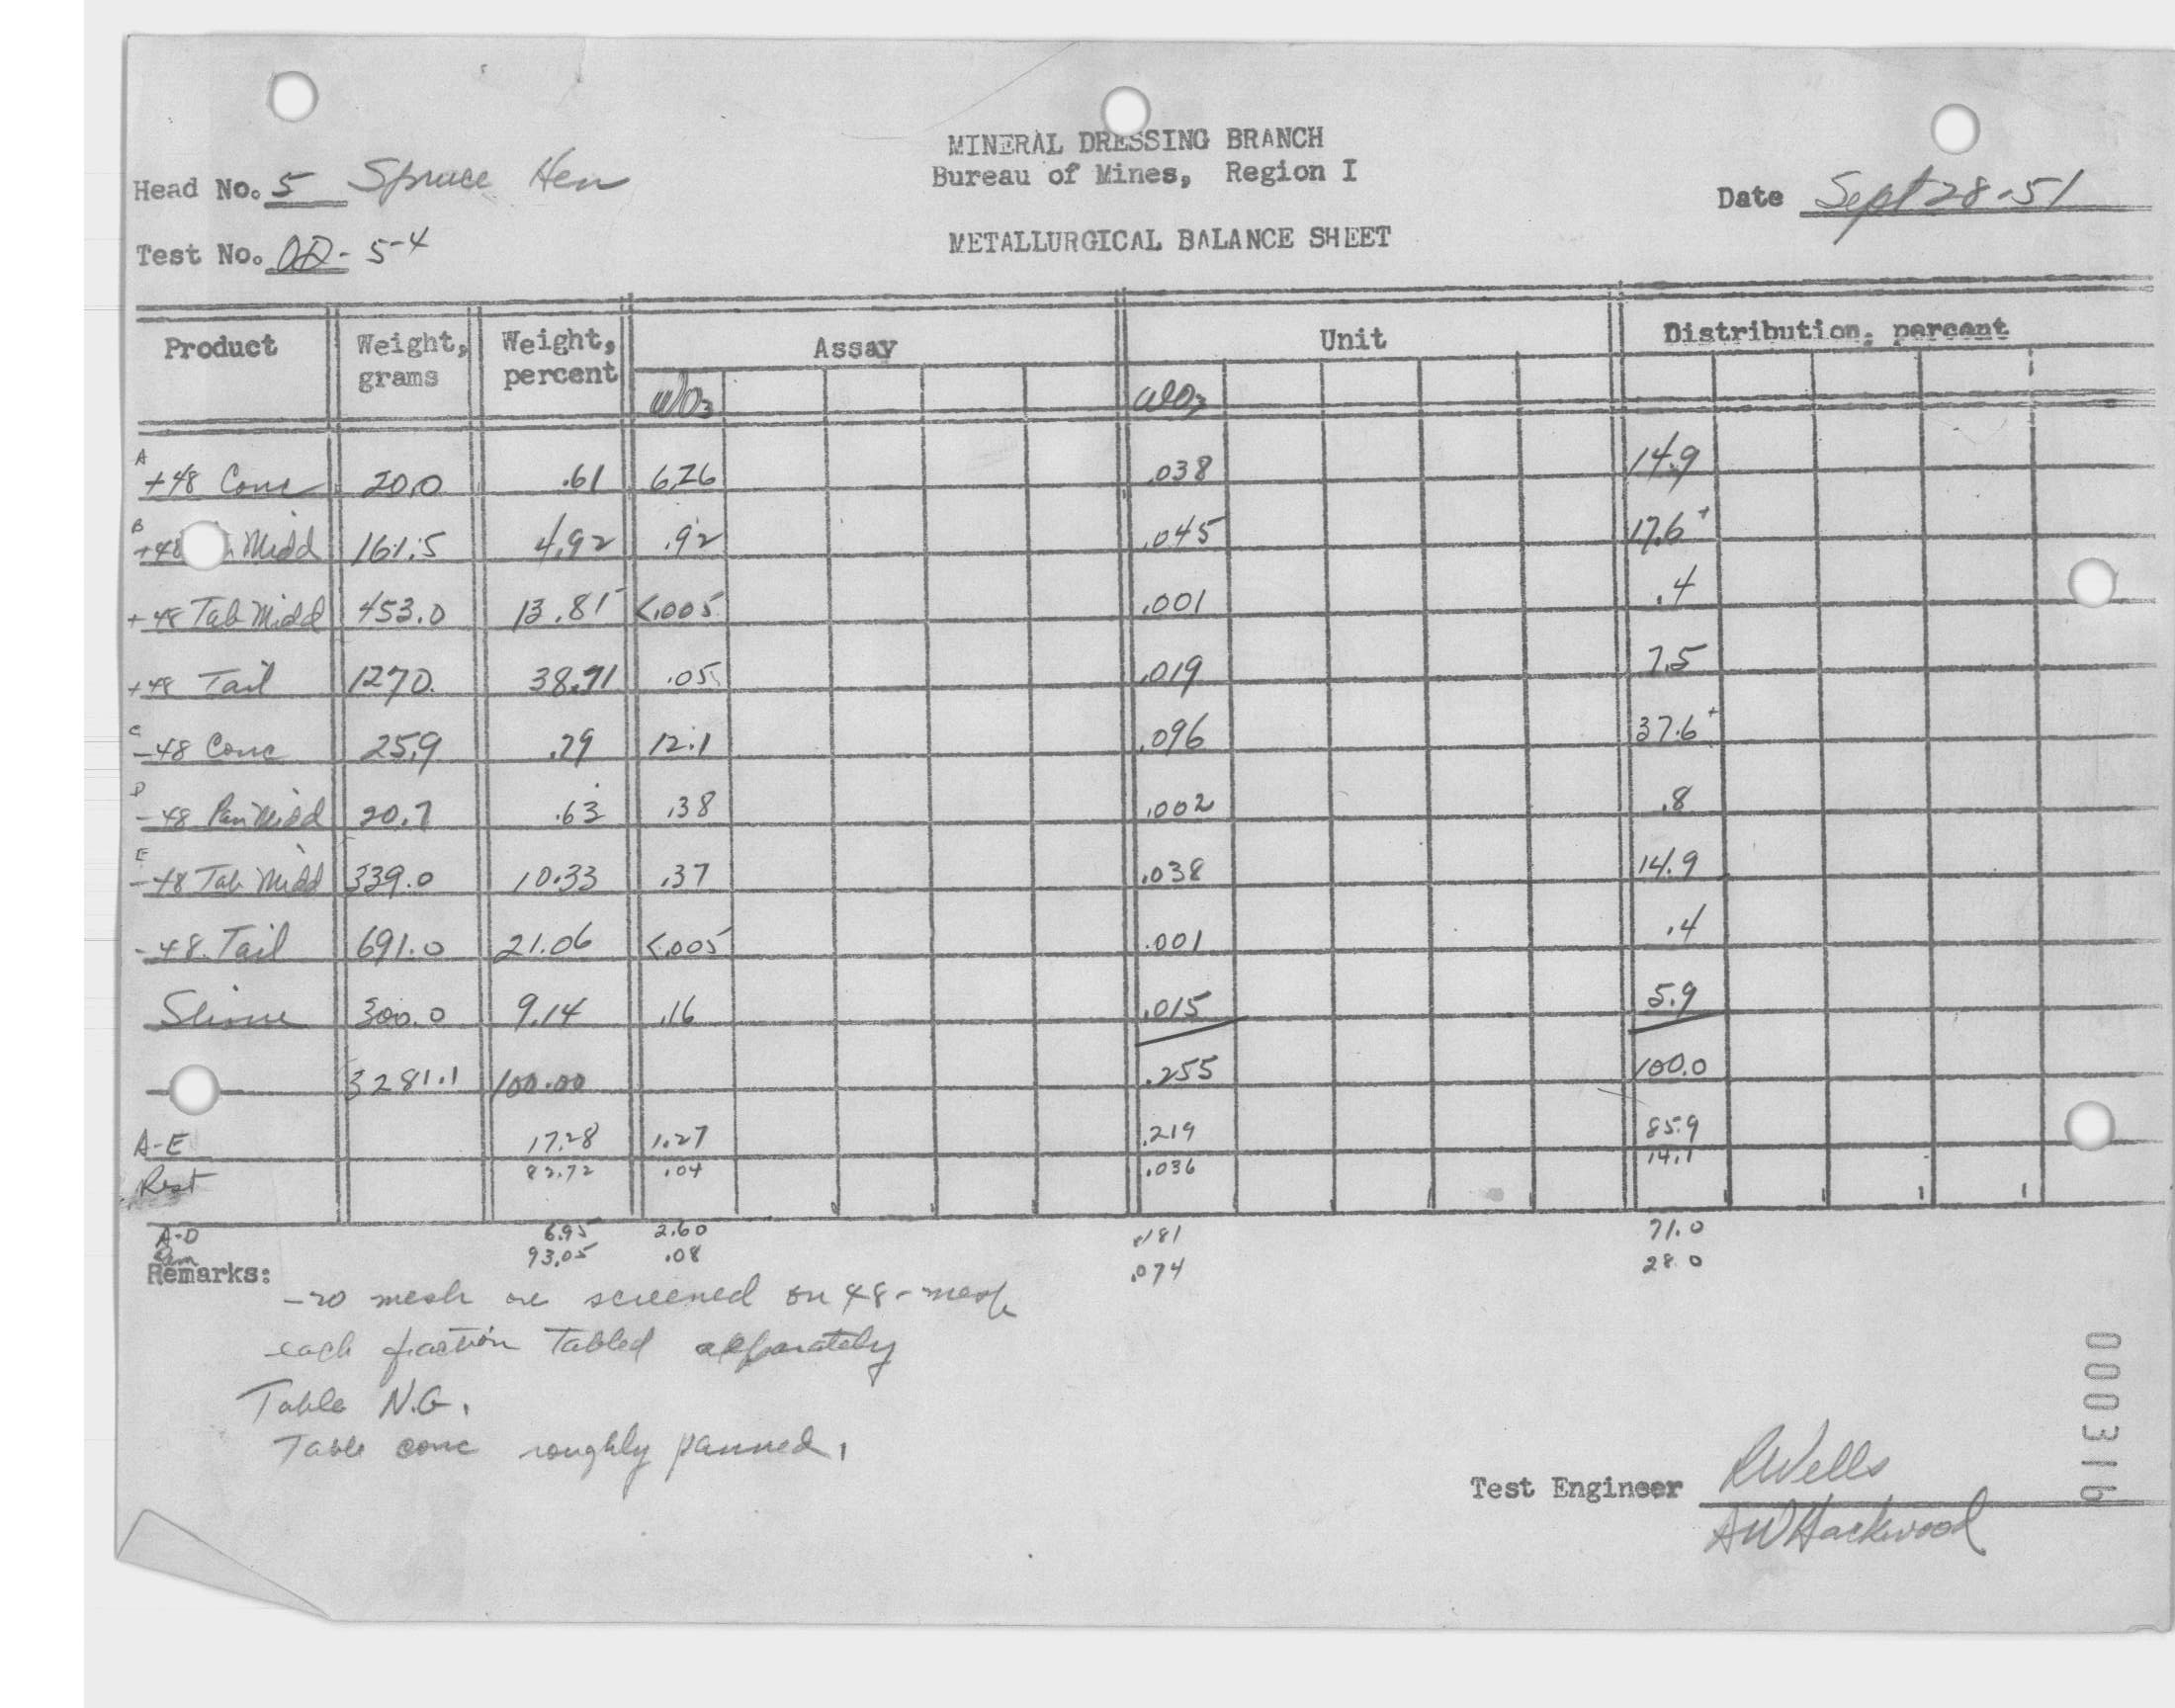 MINERAL DRESSING BRANCH
Bureau of Mines, Region I
Head No. 5 Spruce Hen
Date Sept 28-51
METALLURGICAL BALANCE SHEET
Test No. OD-5-4
Product Weight, grams Weight, percent Assay Unit Distribution, percent
WO3 WO3
A +48 Conc 20.0 .61 6.26 .038 14.9
B +48 Midd 161.5 4.92 .92 .045 17.6+
+48 Tab Midd 453.0 13.81 <.005 .001 .4
+48 Tail 1270. 38.71 .05 .019 7.5
C -48 Conc 25.9 .79 12.1 .096 37.6+
D -48 Pan Midd 20.7 .63 .38 .002 .8
E -48 Tab Midd 339.0 10.33 .37 .038 14.9
-48 Tail 691.0 21.06 <.005 .001 .4
Slime 300.0 9.14 .16 .015 5.9
3281.1 100.00 .255 100.0
A-E 17.28 1.27 .219 85.9
Rest 82.72 .04 .036 14.1
A-D 6.95 2.60 .181 71.0
Rem 93.05 .08 .074 28.0
Remarks:
-20 mesh ore screened on 48-mesh
each fraction Tabled separately
Table N.G.
Table conc roughly panned.
Test Engineer RWells
AW Hackwood
000316